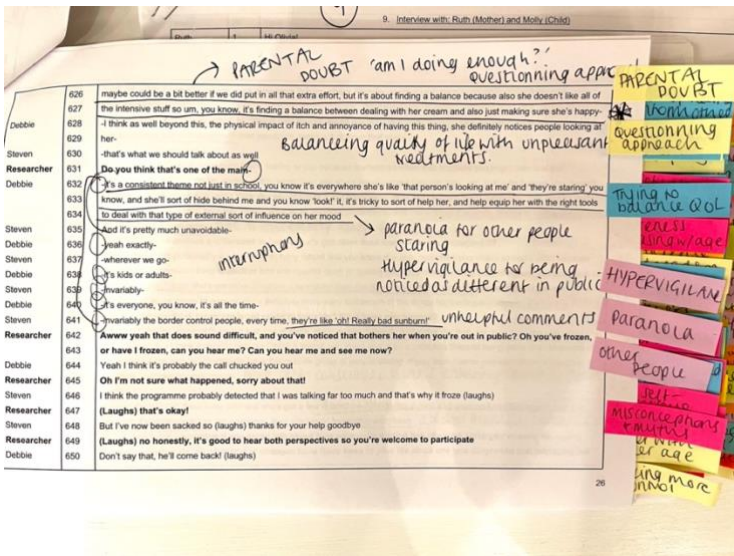 9. Interview with: Ruth (Mother) and Molly (Child)
Ruth 1 Hi Olivia!
PARENTAL DOUBT 'am I doing enough?' questionning
626 maybe could be a bit better if we did put in all that extra effort, but it's about finding a balance because also she doesn't like all of
627 the intensive stuff so um, you know, it's finding a balance between dealing with her cream and also just making sure she's happy-
Debbie 628 -I think as well beyond this, the physical impact of itch and annoyance of having this thing, she definitely notices people looking at
629 her-
Balanceing quality of life with unpleasant treatments.
Steven 630 -that's what we should talk about as well
Researcher 631 Do you think that's one of the main-
Debbie 632 -It's a consistent theme not just in school, you know it's everywhere she's like 'that person's looking at me' and 'they're staring' you
633 know, and she'll sort of hide behind me and you know 'look!' it, it's tricky to sort of help her, and help equip her with the right tools
634 to deal with that type of external sort of influence on her mood
Steven 635 And it's pretty much unavoidable-
Debbie 636 -yeah exactly-
Steven 637 -wherever we go-
Debbie 638 -it's kids or adults-
Steven 639 -invariably-
Debbie 640 -it's everyone, you know, it's all the time-
Steven 641 -invariably the border control people, every time, they're like 'oh! Really bad sunburn!'
interruptions
paranoia for other people staring
Hypervigilance for being noticed as different in public
unhelpful comments
Researcher 642 Awww yeah that does sound difficult, and you've noticed that bothers her when you're out in public? Oh you've frozen,
643 or have I frozen, can you hear me? Can you hear me and see me now?
Debbie 644 Yeah I think it's probably the call chucked you out
Researcher 645 Oh I'm not sure what happened, sorry about that!
Steven 646 I think the programme probably detected that I was talking far too much and that's why it froze (laughs)
Researcher 647 (Laughs) that's okay!
Steven 648 But I've now been sacked so (laughs) thanks for your help goodbye
Researcher 649 (Laughs) no honestly, it's good to hear both perspectives so you're welcome to participate
Debbie 650 Don't say that, he'll come back! (laughs)
26
PARENTAL DOUBT
Questionning approach
Trying to balance QOL
HYPERVIGILAN
paranoia
other people
self-
misconceptions + myths
er age
ing more